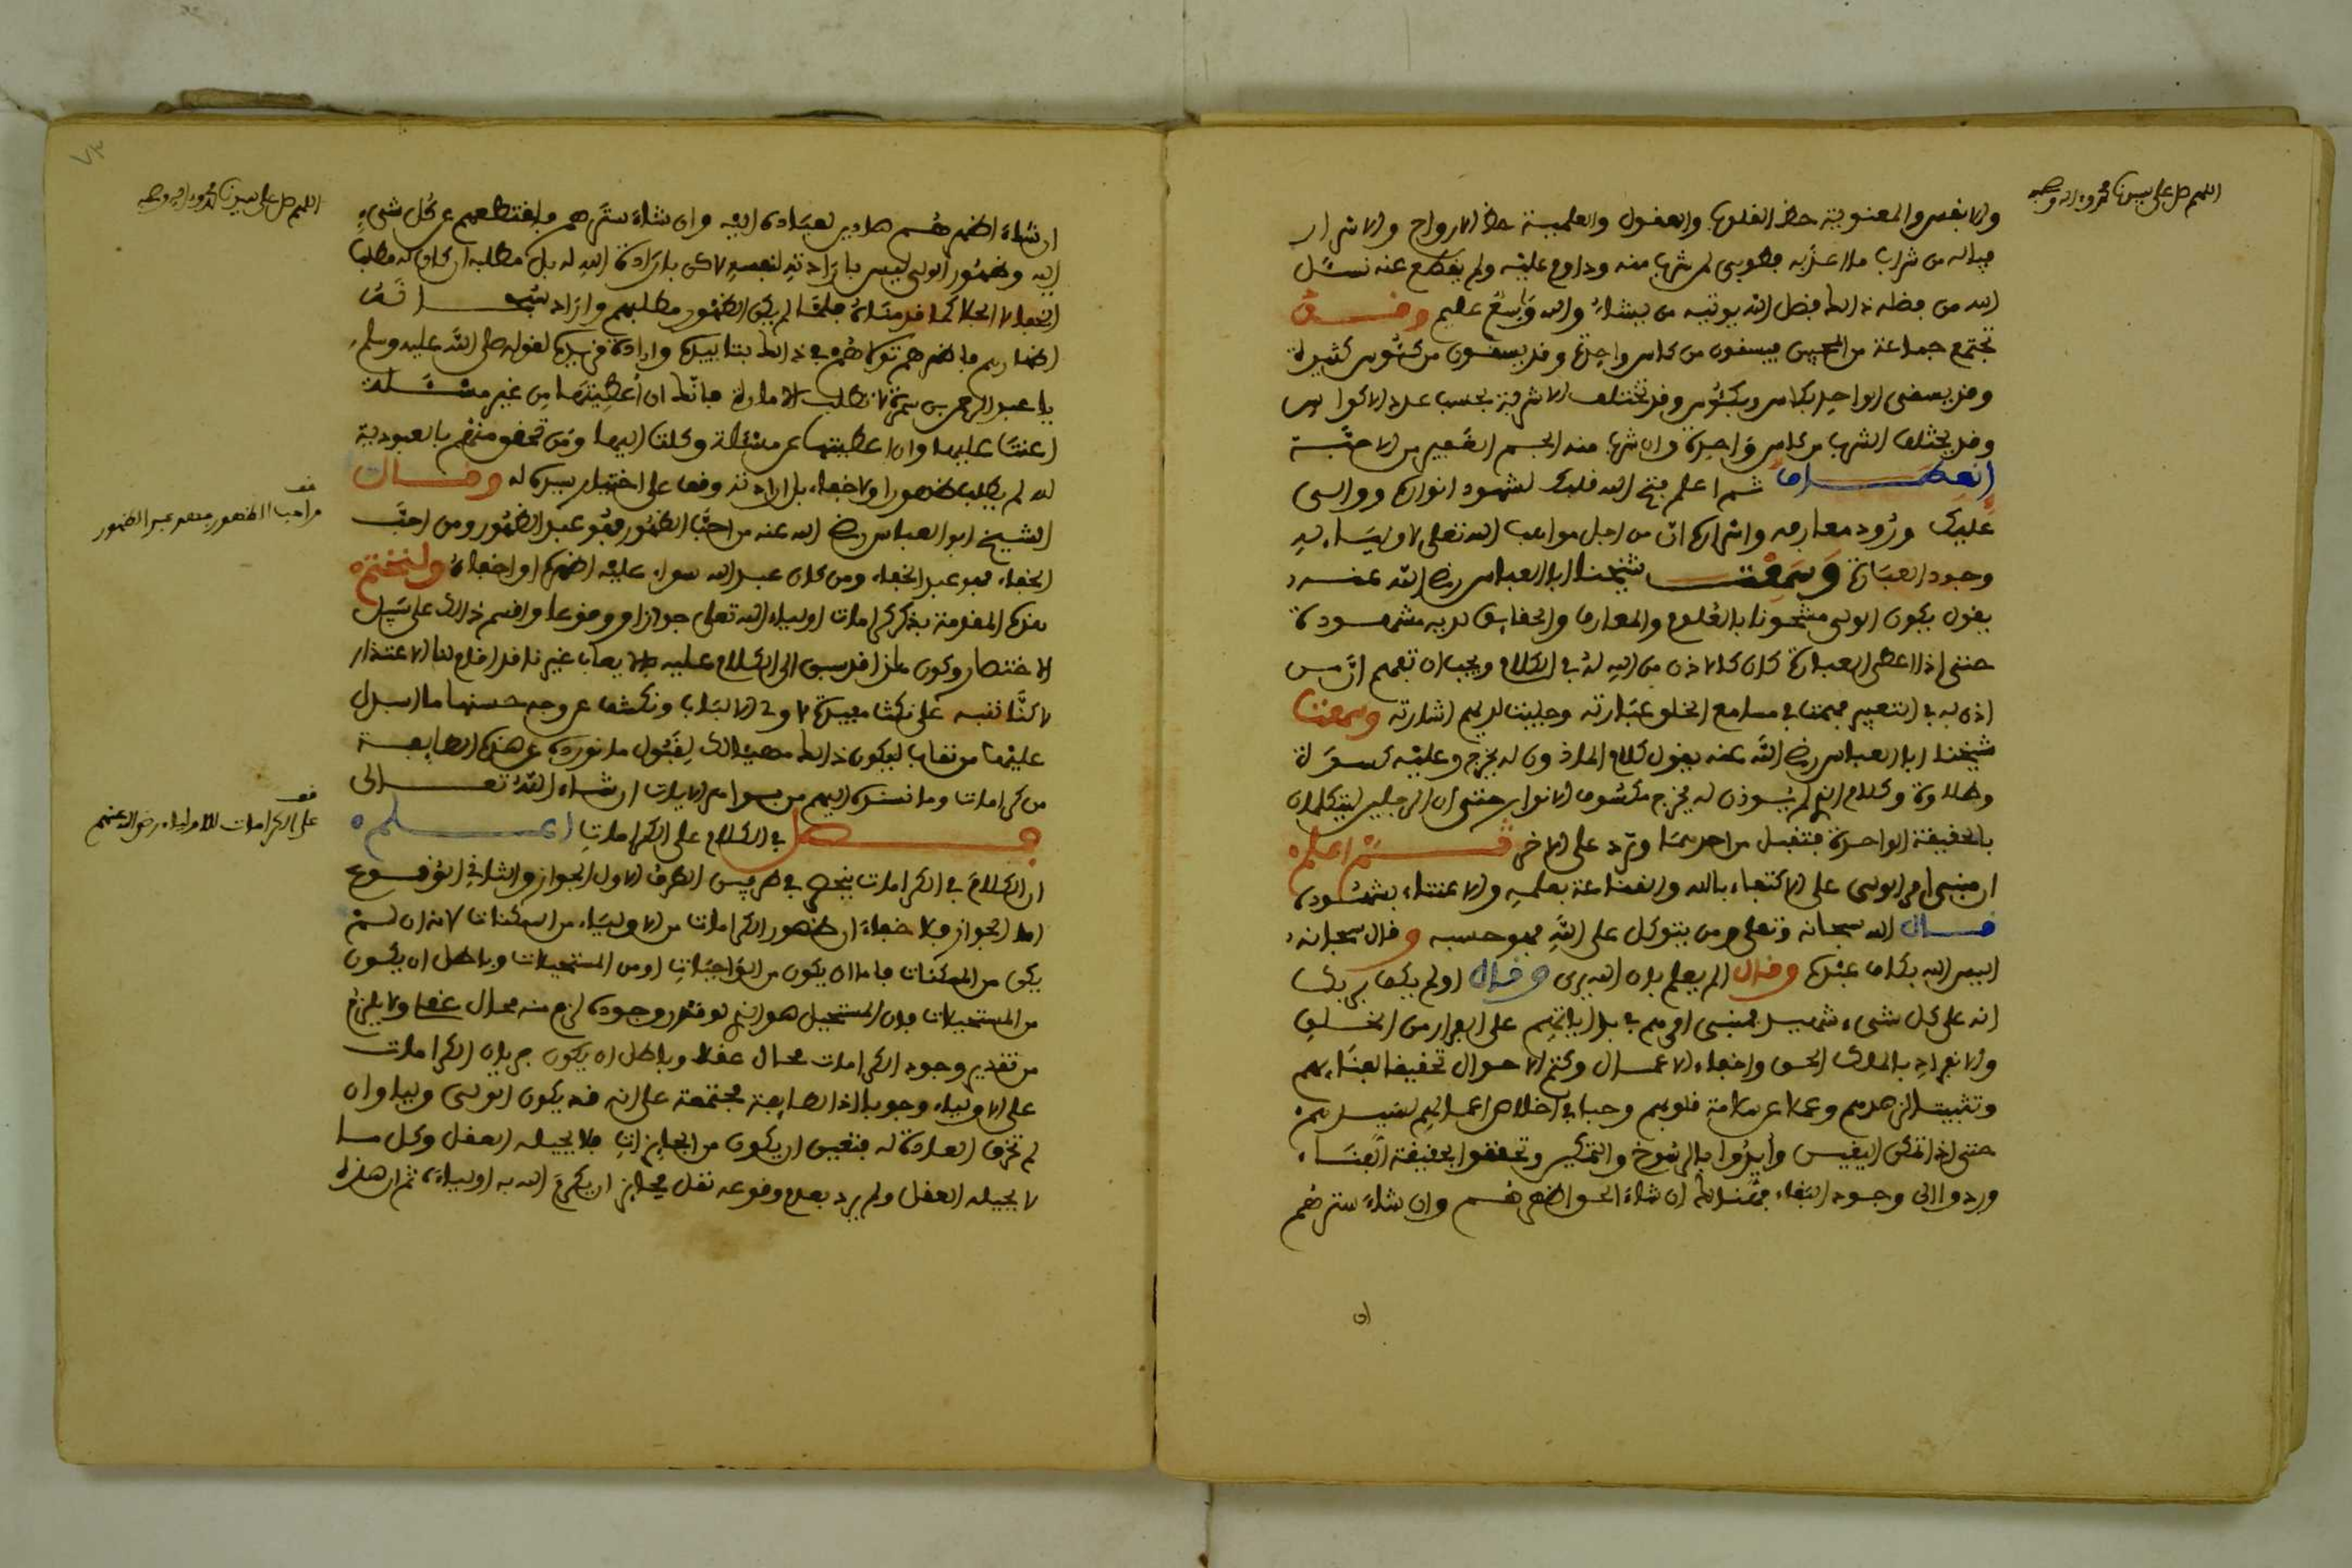 اللهم صل على سيدنا محمد وءاله وصحبه
والانفس والمعنوية حظ القلوب والعقول والعلمية حظ الارواح والاسرار
فياله من شراب ما اعذبه فطوبى لمن شرب منه وداوم عليه ولم يقطع عنه نسئل
الله من فضله ذالك فضل الله يوتيه من يشاء والله واسع عليم وقد
تجتمع جماعة من المحبين فيسقون من كاس واحدة وقد يسقون من كئوس كثيرة
وقد يسقى الواحد بكاس وبكئوس وقد تختلف الاشربة بحسب عدد الاكواس
وقد يختلف الشرب من كاس واحدة وان شرب منه الجم الغفير من الاحبة
انعطاف ثم اعلم فتح الله قلبك لشهود انواره ووالى
عليك ورود معارفه واسراره ان من اجل مواهب الله تعلى لاوليائه
وجود العبارة وسمعت شيخنا ابا العباس رضي الله عنه
يقول يكون الولي مشحونا بالعلوم والمعارف والحقايق لديه مشهودة
حتى اذا اعطي العبارة كان كالاذن من الله له في الكلام ويجب ان تفهم ان من
اذن له في التعبير فهمت في مسامع الخلق عبارته وجليت لديهم اشارته وسمعت
شيخنا ابا العباس رضي الله عنه يقول كلام الماذون له يخرج وعليه كسوة
وطلاوة وكلام الذي لم يوذن له يخرج مكسوف الانوار حتى ان الرجلين ليتكلمان
بالحقيقة الواحدة فتقبل من احدهما وترد على الاخر ثم اعلم
ان مبنى امر الولي على الاكتفاء بالله والقناعة بعلمه والاغتناء بشهوده
قال الله سبحانه وتعلى ومن يتوكل على الله فهو حسبه وقال سبحانه
اليس الله بكاف عبده وقال الم يعلم بان الله يرى وقال اولم يكف بربك
انه على كل شيء شهيد فمبنى امرهم في بداياتهم على الفرار من الخلق
والانفراد بالملك الحق واخفاء الاعمال وكتم الاحوال تحقيقا لفنائهم
وتثبيتا لزهدهم وعملا على سلامة قلوبهم وحبا في اخلاص اعمالهم لسيدهم
حتى اذا تمكن اليقين وأيدوا بالرسوخ والتمكين وتحققوا بحقيقة الفناء
وردوا الى وجود البقاء فهنالك ان شاء الحق اظهرهم وان شاء سترهم
ان
٧٣
اللهم صل على سيدنا محمد وءاله وصحبه
ان شاء اظهرهم هادين لعباده اليه وان شاء سترهم فاقتطعهم عن كل شيء
اليه وظهور الولي ليس بارادته لنفسه لاكن بارادة الله له بل مطلبه ان كان له مطلب
الخفا لا الجلا كما قدمناه فلما لم يكن الظهور مطلبهم واراد سبحانه
اظهارهم فاظهرهم تولاهم في ذالك بتاييده وارادة مزيده لقوله صلى الله عليه وسلم
يا عبد الرحمن بن سمرة لا تطلب الامارة فانك ان أعطيتها من غير مسئلة
اعنت عليها وان اعطيتها عن مسئلة وكلت اليها ومن تحقق منهم بالعبودية
لله لم يطلب ظهورا ولا خفاء بل ارادته وقف على اختيار سيده له وقال
الشيخ ابو العباس رضي الله عنه من احب الظهور فهو عبد الظهور ومن احب
الخفاء فهو عبد الخفاء ومن كان عبد الله سواء عليه اظهره او اخفاه ولنختم
هذه المقدمة بذكر كرامات اولياء الله تعلى جوازا ووقوعا واقسم ذالك على سبيل
الاختصار وكون هذا قد سبق الى الكلام عليه غيرنا قد اقام لنا الاعتذار
لاكنا ننبه على نكت مفيدة لاولي الالباب ونكشف عن وجه حسنها ما اسدل
عليها من نقاب ليكون ذالك مهيئا لك لقبول ما نورده عن هذه الطايفة
من كرامات وما نسنده اليهم من سوامي الايات ان شاء الله تعالى
فصل في الكلام على الكرامات اعلم
ان الكلام في الكرامات ينحصر في طرفين الطرف الاول الجواز والثاني الوقوع
اما الجواز فلا خفاء ان ظهور الكرامات من الاولياء من الممكنات لانه ان لم
يكن من الممكنات فاما ان يكون من الواجبات او من المستحيلات وباطل ان يكون
من المستحيلات فان المستحيل هو الذي لو قدر وجوده لزم منه محال عقلا ولا يلزم
من تقدير وجود الكرامات محال عقلا وباطل ان يكون جريان الكرامات
على الاولياء وجوبا اذ الطايفة مجتمعة على انه قد يكون الولي وليا وان
لم تخرق العادة له فتعين ان يكون من الجايزات فلا يحيله العقل وكل ما
لا يحيله العقل ولم يرد بعدم وقوعه نقل فجايز ان يكرم الله به اولياءه ثم ان هذه
قف
من احب الظهور فهو عبد الظهور
قف
على الكرامات للاولياء رضي الله عنهم